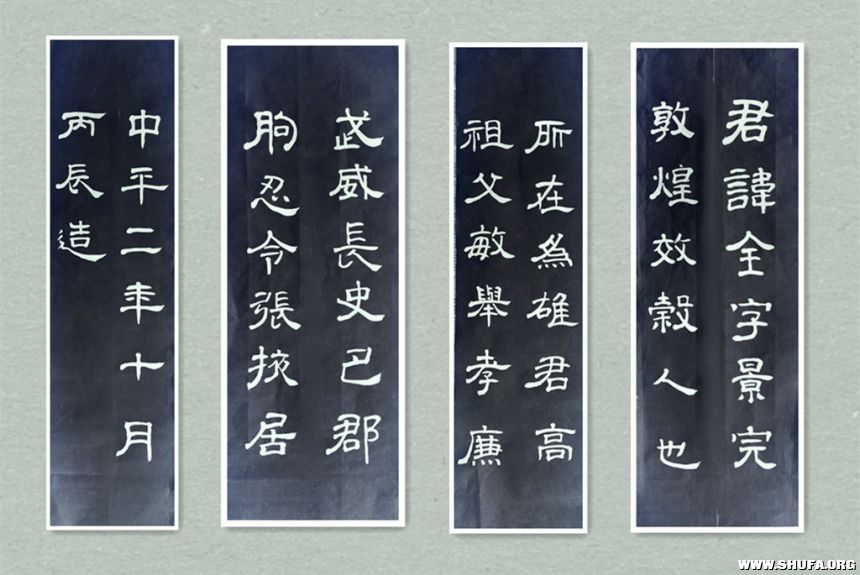 君諱全字景完
敦煌效穀人也
所在為雄君高
祖父敏舉孝廉
武威長史巴郡
朐忍令張掖居
中平二年十月
丙辰造
WWW.SHUFA.ORG